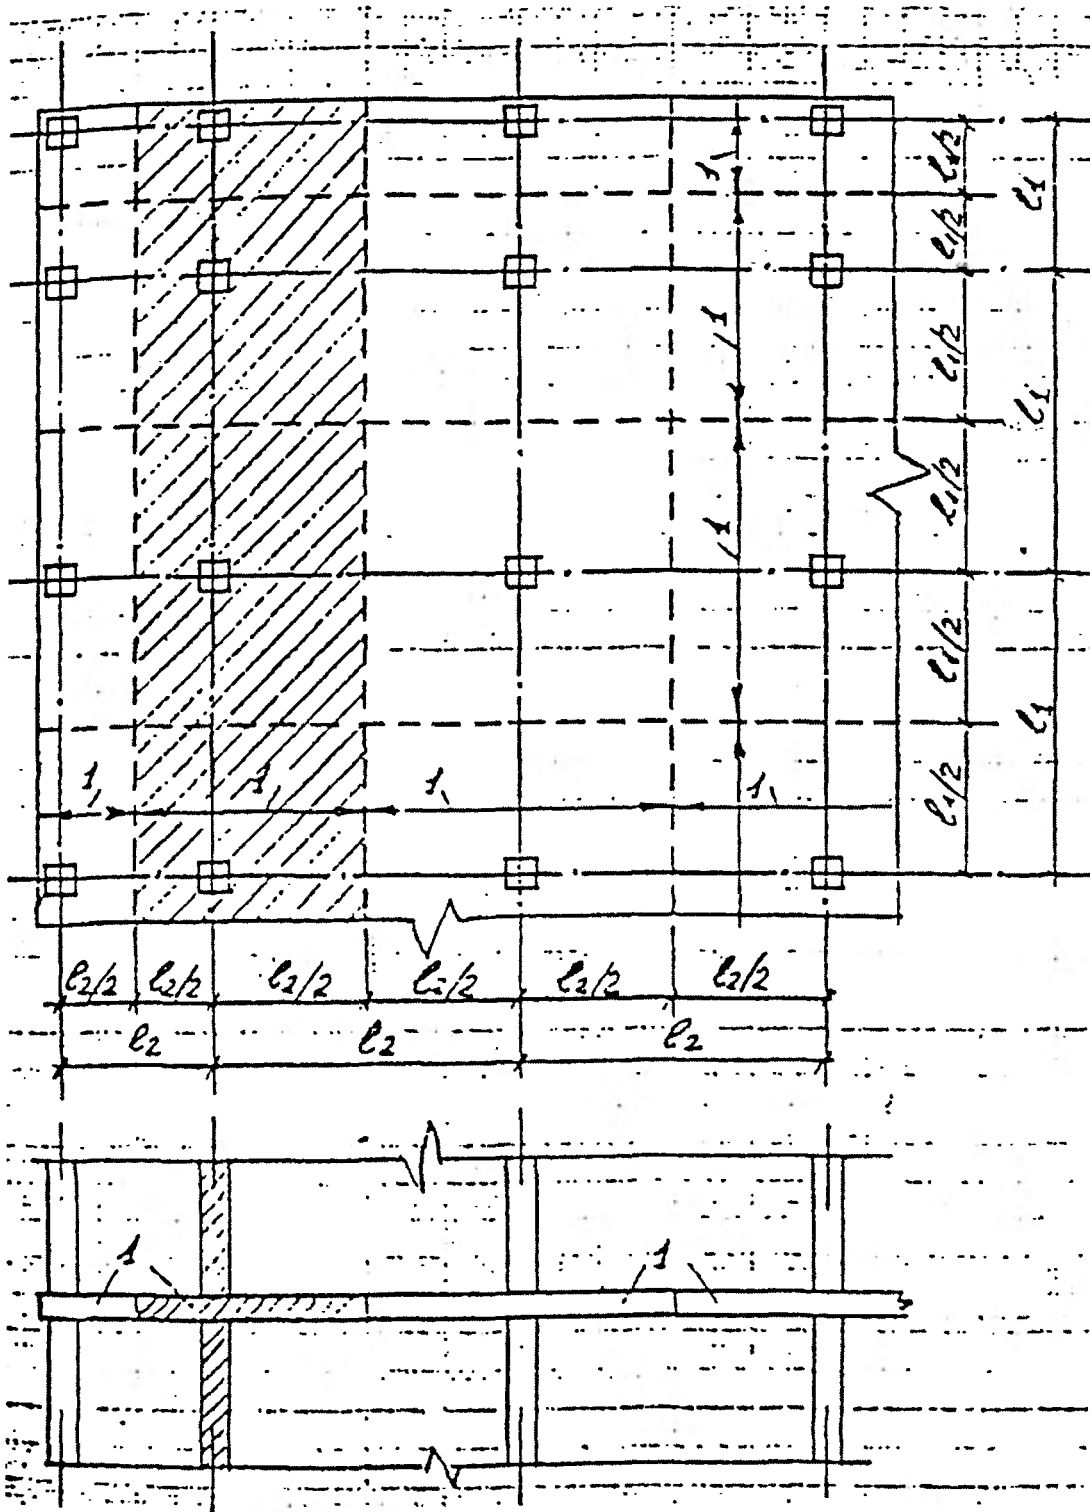 1
l1/2
l1/2
l1
1
l1/2
l1
1
l1/2
l1/2
l1
l1/2
1 1 1 1
l2/2 l2/2 l2/2 l2/2 l2/2 l2/2
l2 l2 l2
1 1